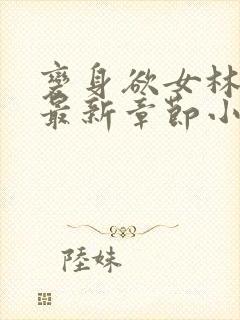 變身欲女林
最新章節小
陸妹